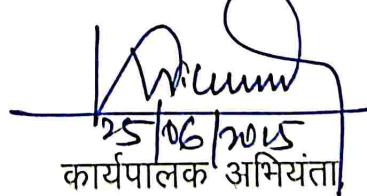 25/06/2015
कार्यपालक अभियंता